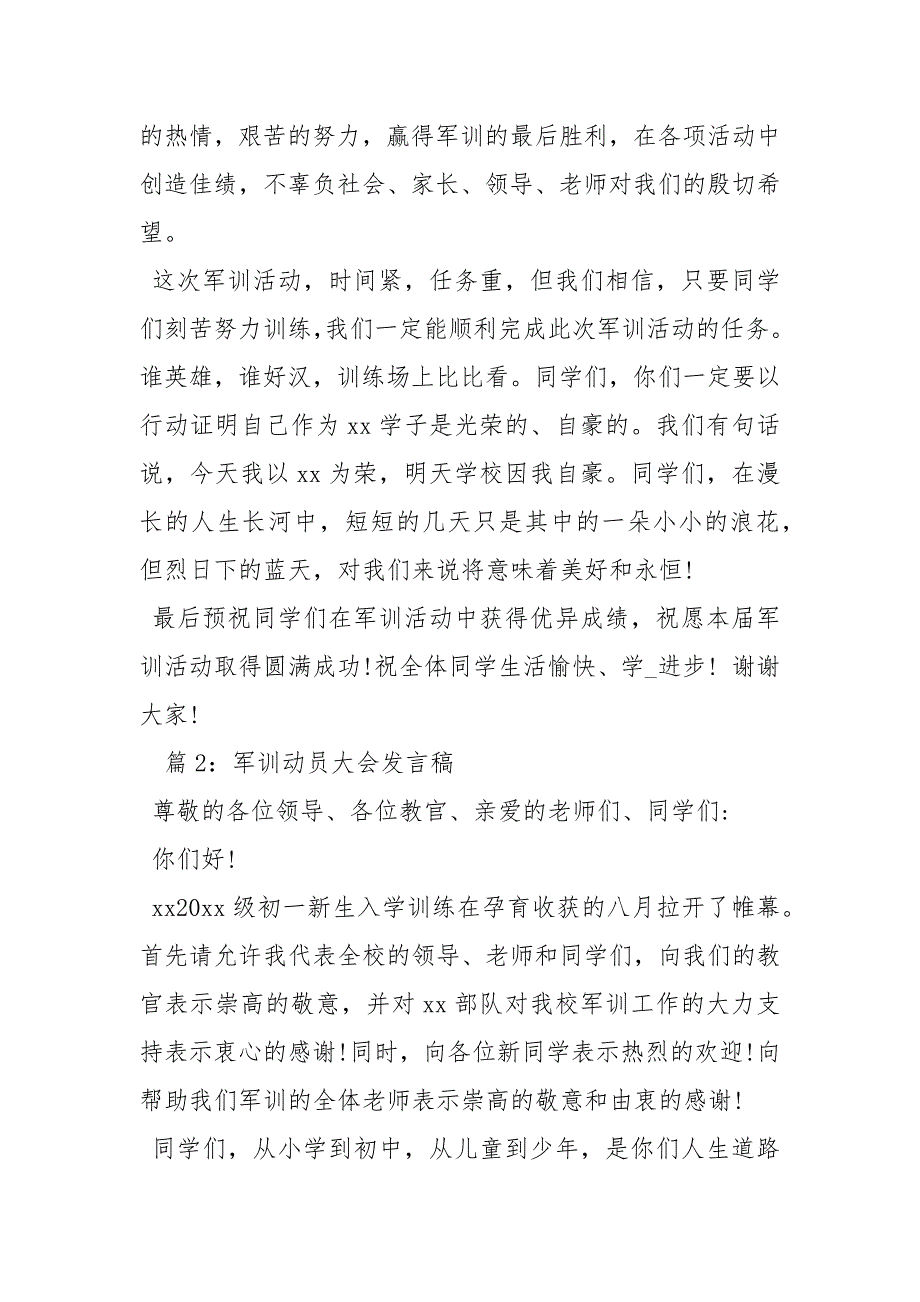 的热情，艰苦的努力，赢得军训的最后胜利，在各项活动中
创造佳绩，不辜负社会、家长、领导、老师对我们的殷切希
望。
这次军训活动，时间紧，任务重，但我们相信，只要同学
们刻苦努力训练，我们一定能顺利完成此次军训活动的任务。
谁英雄，谁好汉，训练场上比比看。同学们，你们一定要以
行动证明自己作为 xx 学子是光荣的、自豪的。我们有句话
说，今天我以 xx 为荣，明天学校因我自豪。同学们，在漫
长的人生长河中，短短的几天只是其中的一朵小小的浪花，
但烈日下的蓝天，对我们来说将意味着美好和永恒!
最后预祝同学们在军训活动中获得优异成绩，祝愿本届军
训活动取得圆满成功!祝全体同学生活愉快、学_进步! 谢谢
大家!
篇2：军训动员大会发言稿
尊敬的各位领导、各位教官、亲爱的老师们、同学们:
你们好!
xx20xx 级初一新生入学训练在孕育收获的八月拉开了帷幕。
首先请允许我代表全校的领导、老师和同学们，向我们的教
官表示崇高的敬意，并对 xx 部队对我校军训工作的大力支
持表示衷心的感谢!同时，向各位新同学表示热烈的欢迎!向
帮助我们军训的全体老师表示崇高的敬意和由衷的感谢!
同学们，从小学到初中，从儿童到少年，是你们人生道路